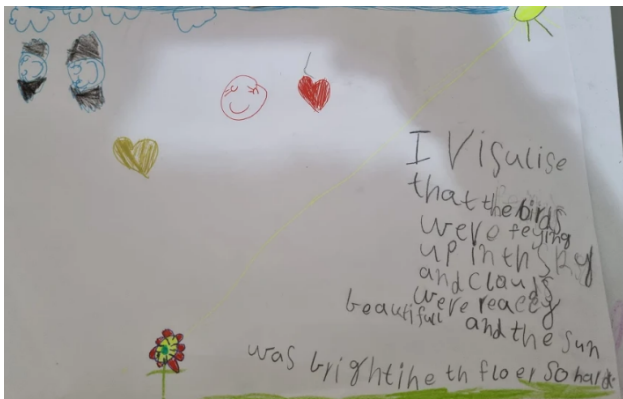 I Visulise
that the birds
were feying
up in th sky
and clauds
were really
beautifull and the sun
was brightihe th floer so hald